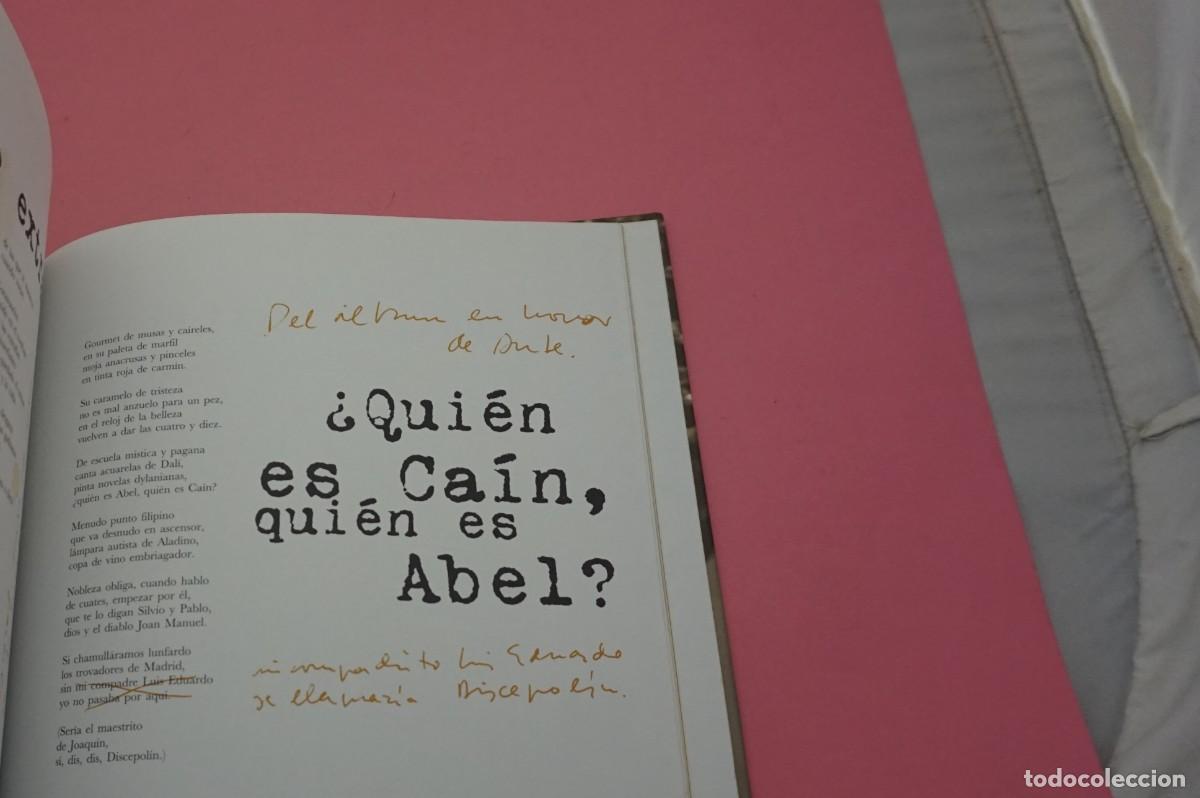 ext
Gourmet de musas y caireles,
en su paleta de marfil
moja anacrusas y pinceles
en tinta roja de carmín.
Su caramelo de tristeza
no es mal anzuelo para un pez,
en el reloj de la belleza
vuelven a dar las cuatro y diez.
De escuela mística y pagana
canta acuarelas de Dalí,
pinta novelas dylanianas,
¿quién es Abel, quién es Caín?
Menudo punto filipino
que va desnudo en ascensor,
lámpara autista de Aladino,
copa de vino embriagador.
Nobleza obliga, cuando hablo
de cuates, empezar por él,
que te lo digan Silvio y Pablo,
dios y el diablo Joan Manuel.
Si chamulláramos lunfardo
los trovadores de Madrid,
sin mi compadre Luis Eduardo
yo no pasaba por aquí.
(Sería el maestrito
de Joaquín,
sí, dis, dis, Discepolín.)
Del álbum en honor
de Aute.
¿Quién
es Caín,
quién es
Abel?
mi compadrito Luis Eduardo
se llamaría Discepolín.
todocoleccion